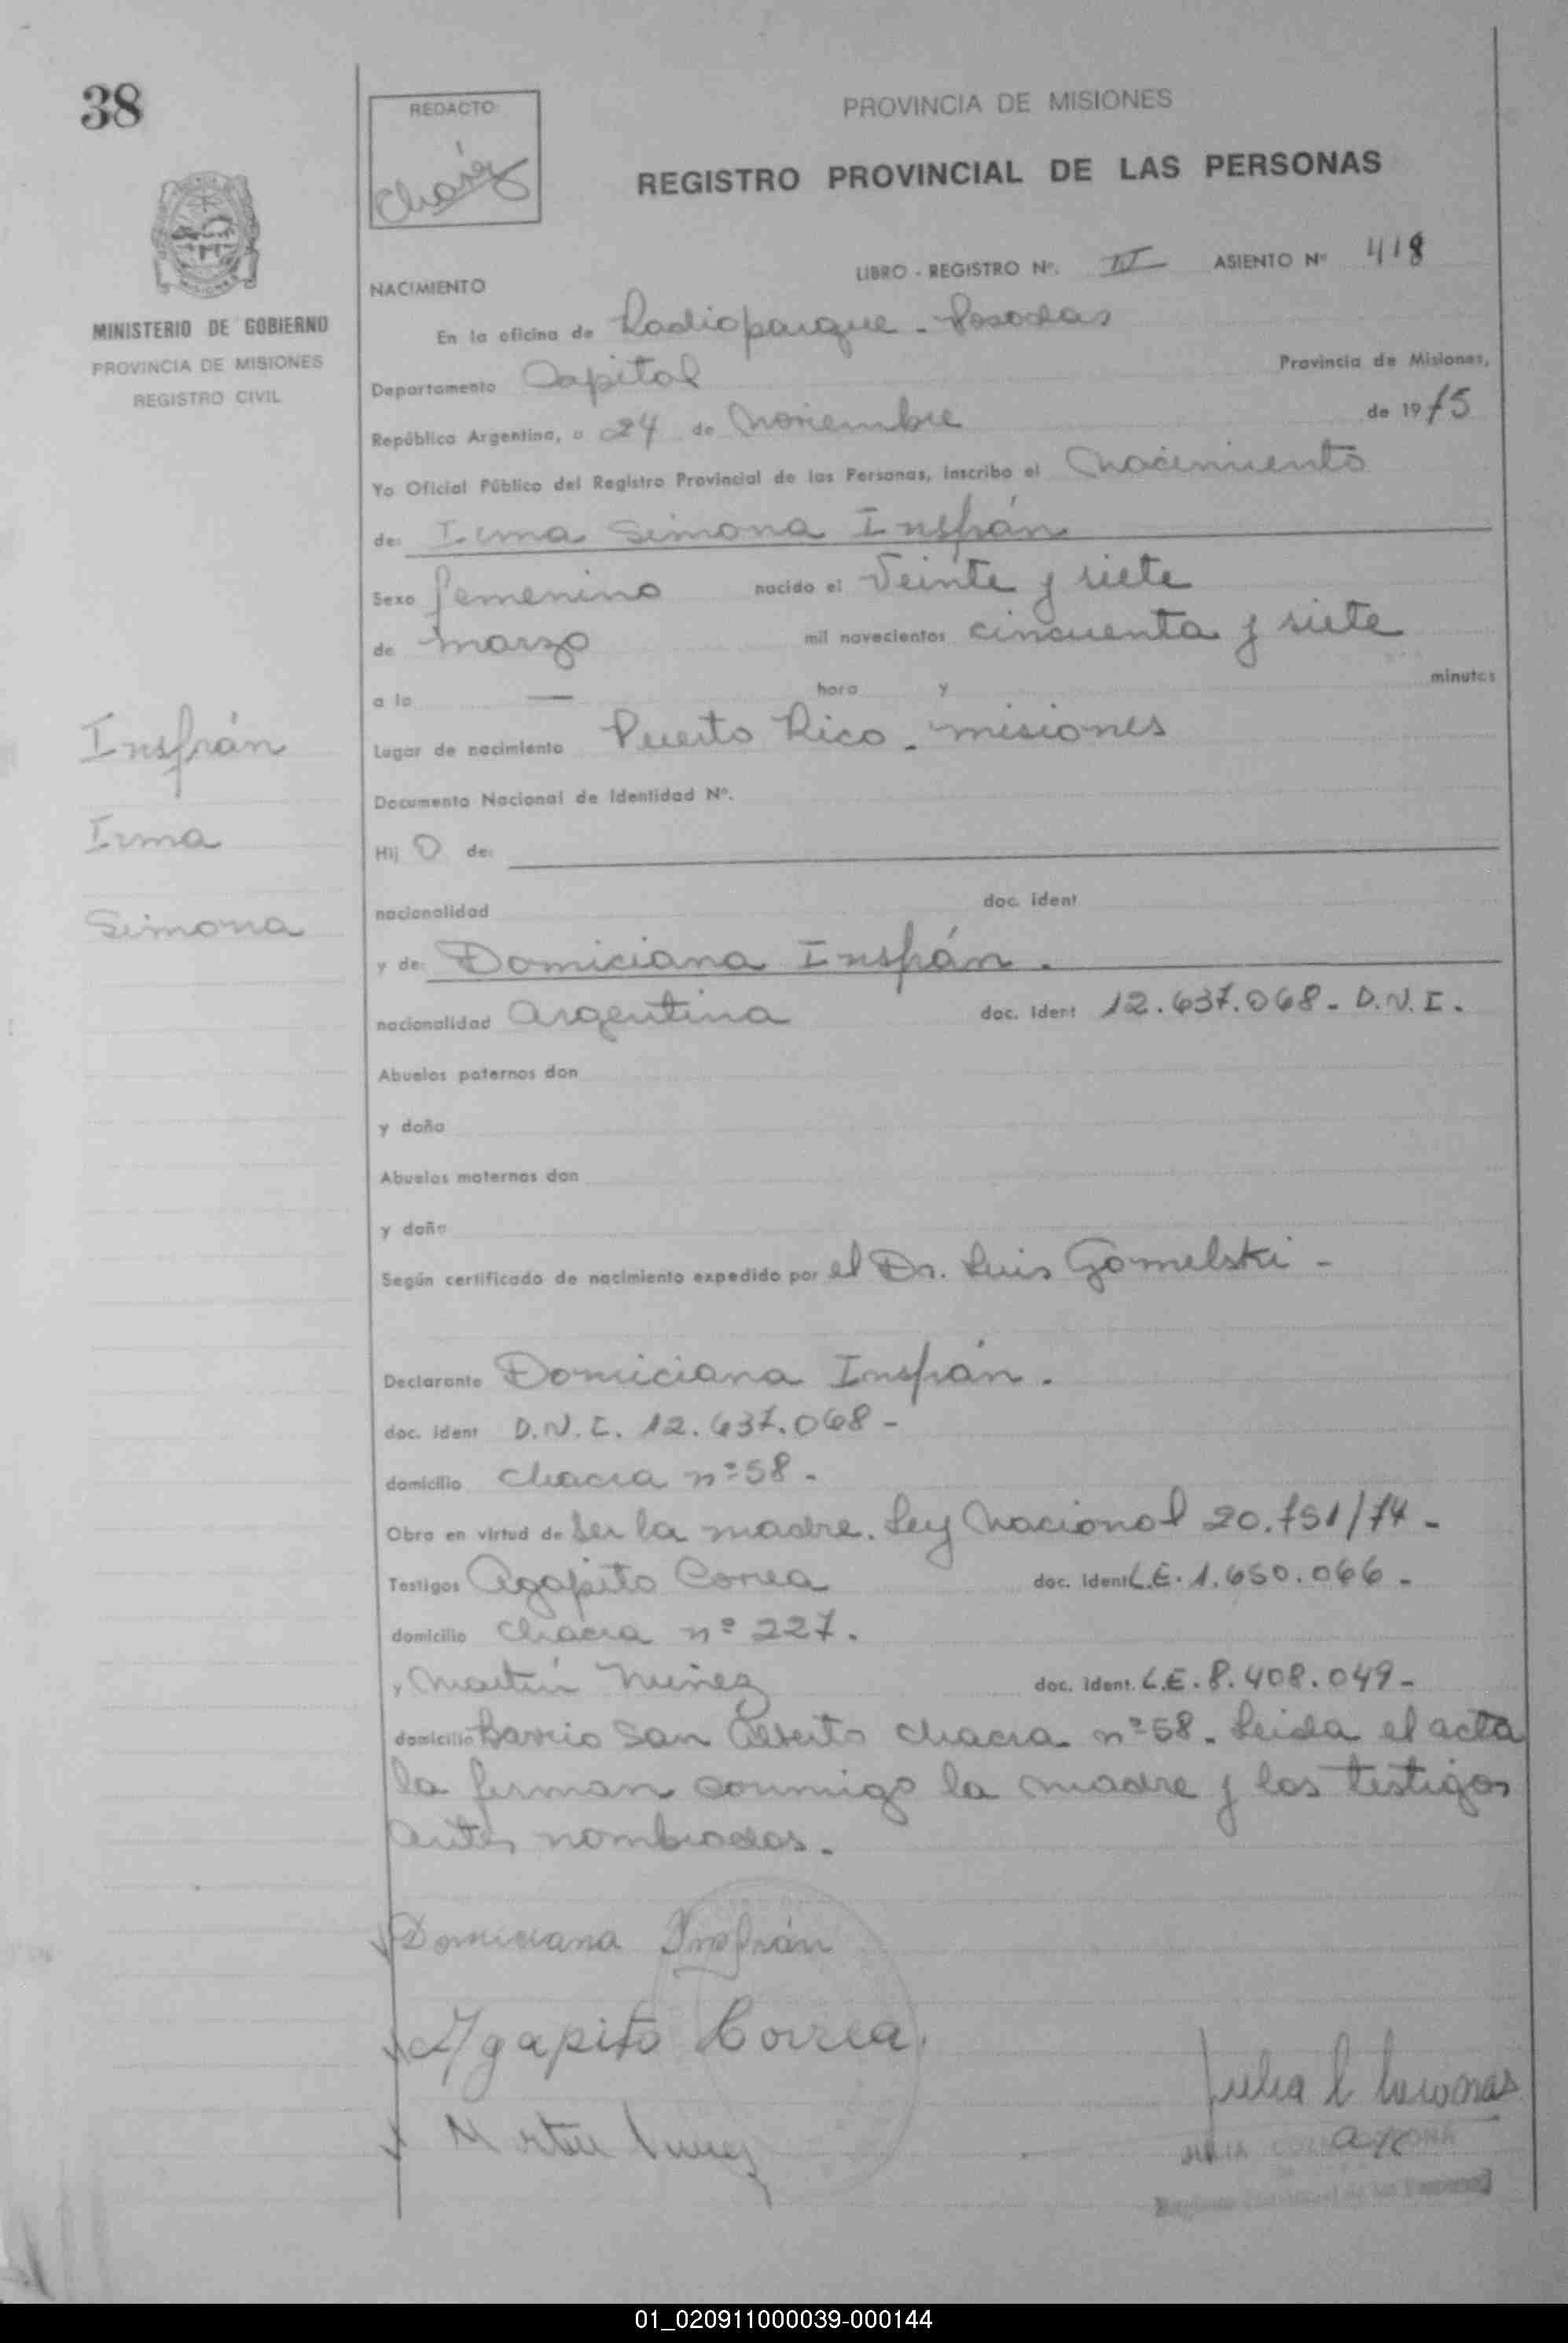 38
REDACTO
PROVINCIA DE MISIONES
REGISTRO PROVINCIAL DE LAS PERSONAS
MINISTERIO DE GOBIERNO
PROVINCIA DE MISIONES
REGISTRO CIVIL
LIBRO - REGISTRO Nº. ASIENTO Nº 418
NACIMIENTO
En la oficina de Radioparque - Posadas
Departamento Capital Provincia de Misiones,
República Argentina, a 24 de Noviembre de 1975
Yo Oficial Público del Registro Provincial de las Personas, inscribo el Nacimiento
de: Irma Simona Insfrán
Sexo femenino nacido el Veinte y siete
de marzo mil novecientos cincuenta y siete
a la — hora y minutos
Lugar de nacimiento Puerto Rico - misiones
Documento Nacional de Identidad Nº.
Hij O de:
nacionalidad doc. ident
y de: Domiciana Insfrán.
nacionalidad argentina doc. ident 12.637.068- D.N.I.
Abuelos paternos don
y doña
Abuelos maternos don
y doña
Según certificado de nacimiento expedido por el Dr. Luis Gomelski -
Declarante Domiciana Insfrán.
doc. ident D.N.I. 12.637.068-
domicilio chacra nº58-
Obra en virtud de ser la madre. Ley Nacional 20.751/74-
Testigos Agapito Correa doc. ident L.E. 1.650.066-
domicilio chacra nº 227.
y Martín Nuñez doc. ident. L.E. 8.408.049-
domicilio Barrio San Alberto chacra nº58- Leida el acta
la firman conmigo la madre y los testigos
antes nombrados.
Insfrán
Irma
Simona
Domiciana Insfrán
Agapito Correa.
Julia
01_020911000039-000144